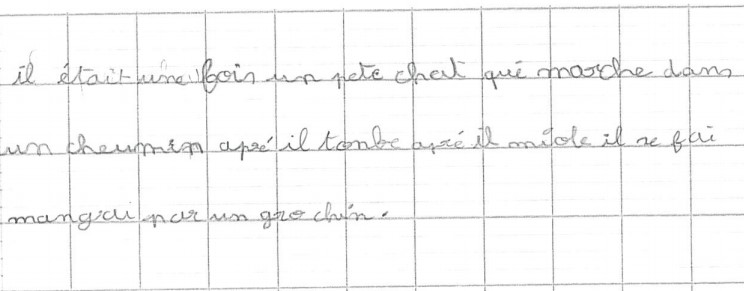 il était une fois un pete chat qué marche dans
un cheumin apré il tonbe apré il miole il se fai
mangai par un gro chin.